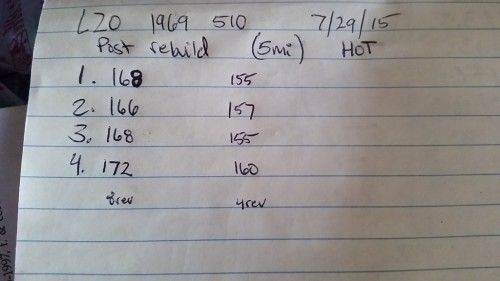 L20 1969 510 7/29/15
Post rebuild (5mi) HOT
1. 168 155
2. 166 157
3. 168 155
4. 172 160
8rev 4rev